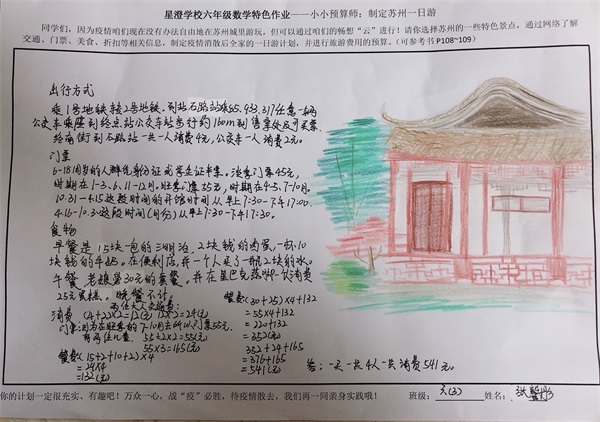 星澄学校六年级数学特色作业——小小预算师：制定苏州一日游
同学们，因为疫情咱们现在没有办法自由地在苏州城里游玩，但可以通过咱们的畅想“云”进行！请你选择苏州的一些特色景点，通过网络了解
交通、门票、美食、折扣等相关信息，制定疫情消散后全家的一日游计划，并进行旅游费用的预算。（可参考书 P108~109）
出行方式
乘1号地铁转2号地铁，到站石路站乘55,933,317任意一辆
公交车乘座到终点站公交车站步行约160m到售票处及可买票.
南街到石路站一共一人消费4元,公交车一人消费2元。
门票
6-18周岁的人群凭身份证或学生证半票。淡季门票45元,
时期在1-3,6,11-12月。旺季门票55元,时期在4-5,7-10月.
10.31-4.15这段时间的开馆时间从早上7:30-下午17:00.
4.16-10.30这段时间(月份)从早上7:30-下午17:30.
食物
早餐是15块一包的三明治，2块钱的肉,一杯10
块钱的牛奶。在便利店,并一个人买了一瓶2块的水。
午餐 老娘舅30元的套餐。并在星巴克一次消费
25元。晚餐不付
消费 (4+2)×2=12(元) 12×2=24(元)
门票因为在旺季的7-10月去所以门票55元.
55÷2×2=55(元)
55×3=165(元)
餐费(15+2+10+2)×4
=29×4
=132(元)
餐费(30+25)×4+132
=55×4+132
=220+132
=352(元)
352+24+165
=376+165
=541(元)
答：一天一共4人一共消费541元。
你的计划一定很充实、有趣吧！万众一心，战“疫”必胜，待疫情散去，我们再一同亲身实践哦！ 班级：六(3) 姓名：